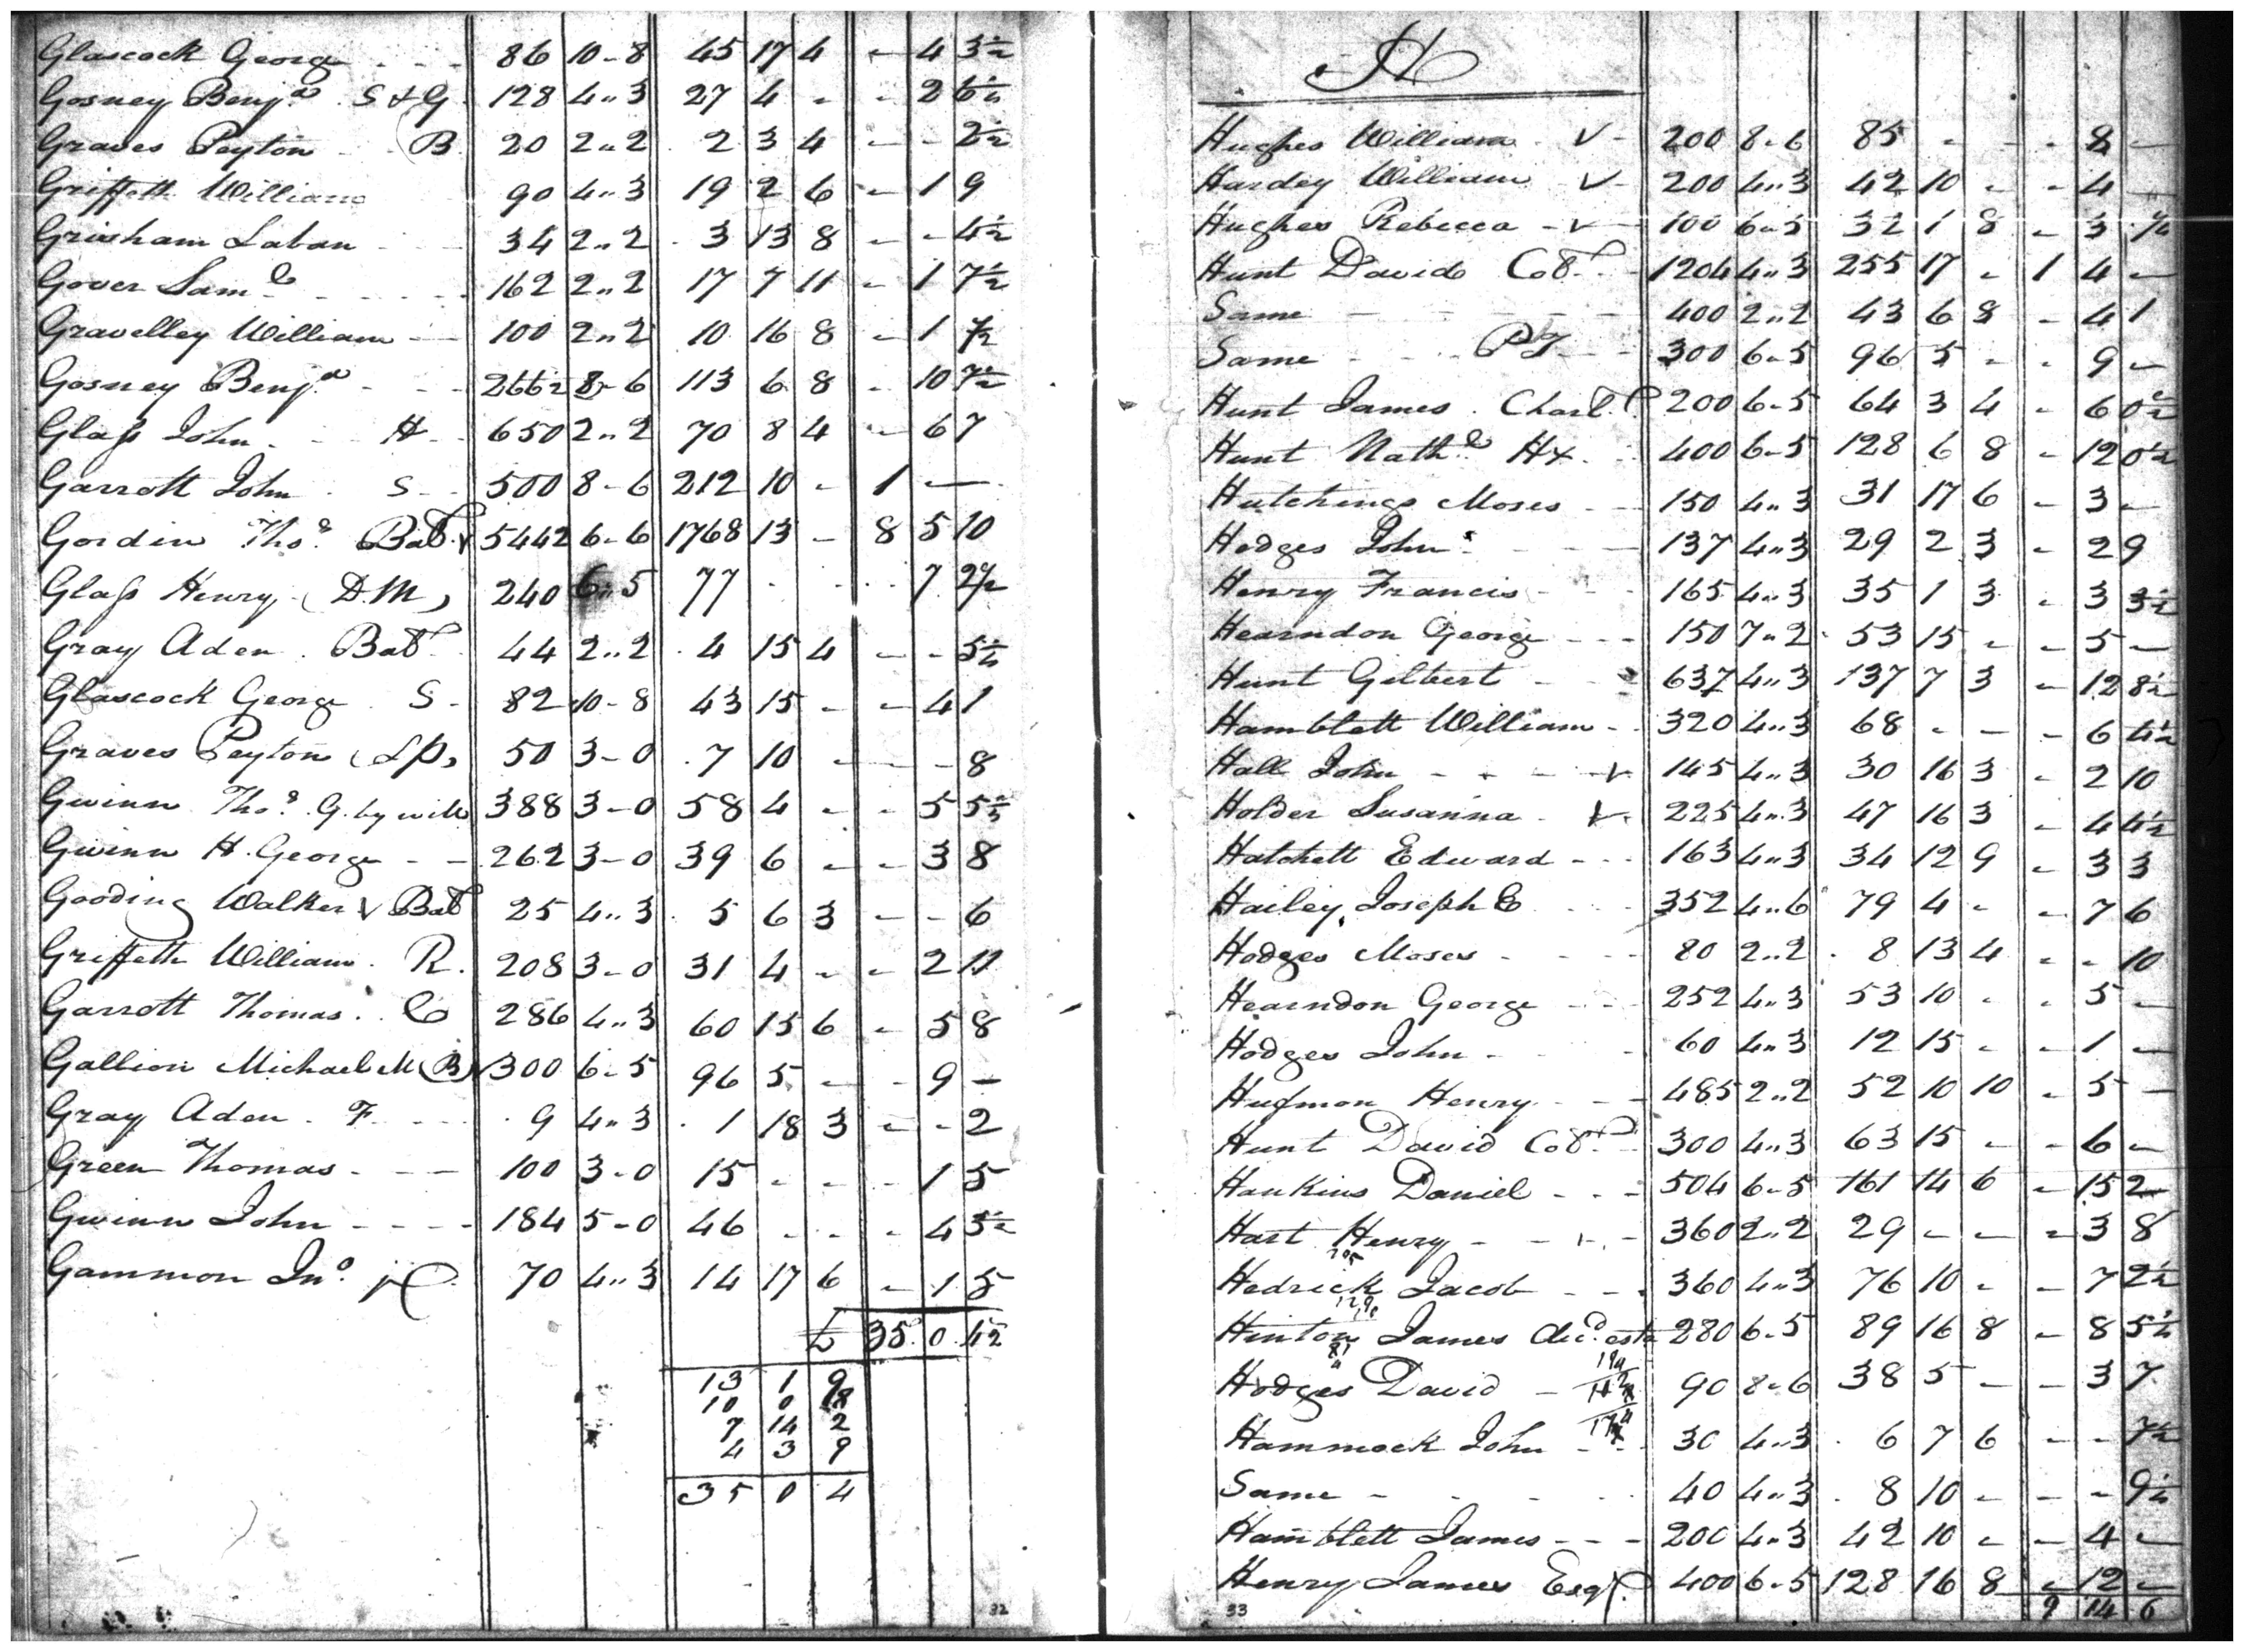 Glascock George - - - 86 10-8 45 17 4 - 4 3½
Gosney Benjᵃ. S & G 128 4..3 27 4 - - 2 6½
Graves Peyton - - B 20 2..2 2 3 4 - - 2½
Griffeth William 90 4..3 19 2 6 - 1 9
Grisham Laban - - 34 2..2 3 13 8 - - 4½
Gover Samˡ - - - 162 2..2 17 7 11 - 1 7½
Gravelley William - - 100 2..2 10 16 8 - 1 ½
Gosney Benjᵃ - - - 266½ 8-6 113 6 8 - 10 7½
Glaſs John - - H - 650 2..2 70 8 4 - 6 7
Garrott John - S - 500 8-6 212 10 - 1 -
Gordin Thoˢ. Baᵗ. v 5442 6-6 1768 13 - 8 5 10
Glaſs Henry (D.M) 240 6..5 77 - - - 7 2½
Gray Aden . Baᵗ. 44 2..2 4 15 4 - - 5½
Glascock George . S - 82 10-8 43 15 - - 4 1
Graves Peyton (LP) 50 3-0 7 10 - - - 8
Gwinn Thoˢ. G. by will 388 3-0 58 4 - - 5 5½
Gwinn H. George - - 262 3-0 39 6 - - 3 8
Gooding Walker v Baᵗ 25 4..3 5 6 3 - - 6
Griffeth William . R. 208 3-0 31 4 - - 2 11
Garrott Thomas . Co 286 4..3 60 15 6 - 5 8
Gallion Michael M (B) v 300 6-5 96 5 - - 9 -
Gray Aden . F - - - 9 4..3 1 18 3 - - 2
Green Thomas - - - 100 3-0 15 - - - 1 5
Gwinn John - - - - 184 5-0 46 - - - 4 3½
Gammon Jnᵒ. 70 4..3 14 17 6 - 1 5
£ 35. 0. 4½
13 1 9
10 0 8
7 14 2
4 3 9
35 0 4
32
H
Hughes William . V - 200 8-6 85 - - - 8 -
Hardey William - V - 200 4..3 42 10 - - 4 -
Hughes Rebecca - v - 100 6-5 32 1 8 - 3 ½
Hunt David Coᵗ. - 1204 4..3 255 17 - 1 4 -
Same - - - - - - 400 2..2 43 6 8 - 4 1
Same - - - P.J. - - 300 6-5 96 5 - - 9 -
Hunt James . Charᵗ. 200 6-5 64 3 4 - 6 0½
Hunt Nathˡ Hx. - 400 6-5 128 6 8 - 12 0½
Hutchings Moses - - 150 4..3 31 17 6 - 3 -
Hodges Johnˢ. - - - 137 4..3 29 2 3 - 2 9
Henry Francis - - 165 4..3 35 1 3 - 3 3½
Hearndon George - - - 150 7..2 53 15 - - 5 -
Hunt Gilbert - - 637 4..3 137 7 3 - 12 8½
Hamblett William - . 320 4..3 68 - - - 6 4½
Hall John - - - v 145 4..3 30 16 3 - 2 10
Holder Susanna - v. 225 4..3 47 16 3 - 4 4½
Hatchett Edward - - - 163 4..3 34 12 9 - 3 3
Hailey Joseph E - - - 352 4..6 79 4 - - 7 6
Hodges Moses - - - 80 2..2 8 13 4 - - 10
Hearndon George - - 252 4..3 53 10 - - 5 -
Hodges John - - - 60 4..3 12 15 - - 1 -
Hufmon Henry - - - 485 2..2 52 10 10 - 5 -
Hunt David Coᵗ. - 300 4..3 63 15 - - 6 -
Hankins Daniel - - - 504 6-5 161 14 6 - 15 2
Hart Henry - - v - 360 2..2 29 - - - 3 8
Hedrick Jacob - - - 360 4..3 76 10 - - 7 2½
Hinton James decᵈ. est 280 6-5 89 16 8 - 8 5½
Hodges David - 90 8-6 38 5 - - 3 7
Hammock John - - 30 4..3 6 7 6 - - 7½
Same - - - - - 40 4..3 8 10 - - - 9½
Hamblett James - - - 200 4..3 42 10 - - 4 -
Henry James Esqʳ. 400 6-5 128 16 8 - 12 -
9 14 6
33